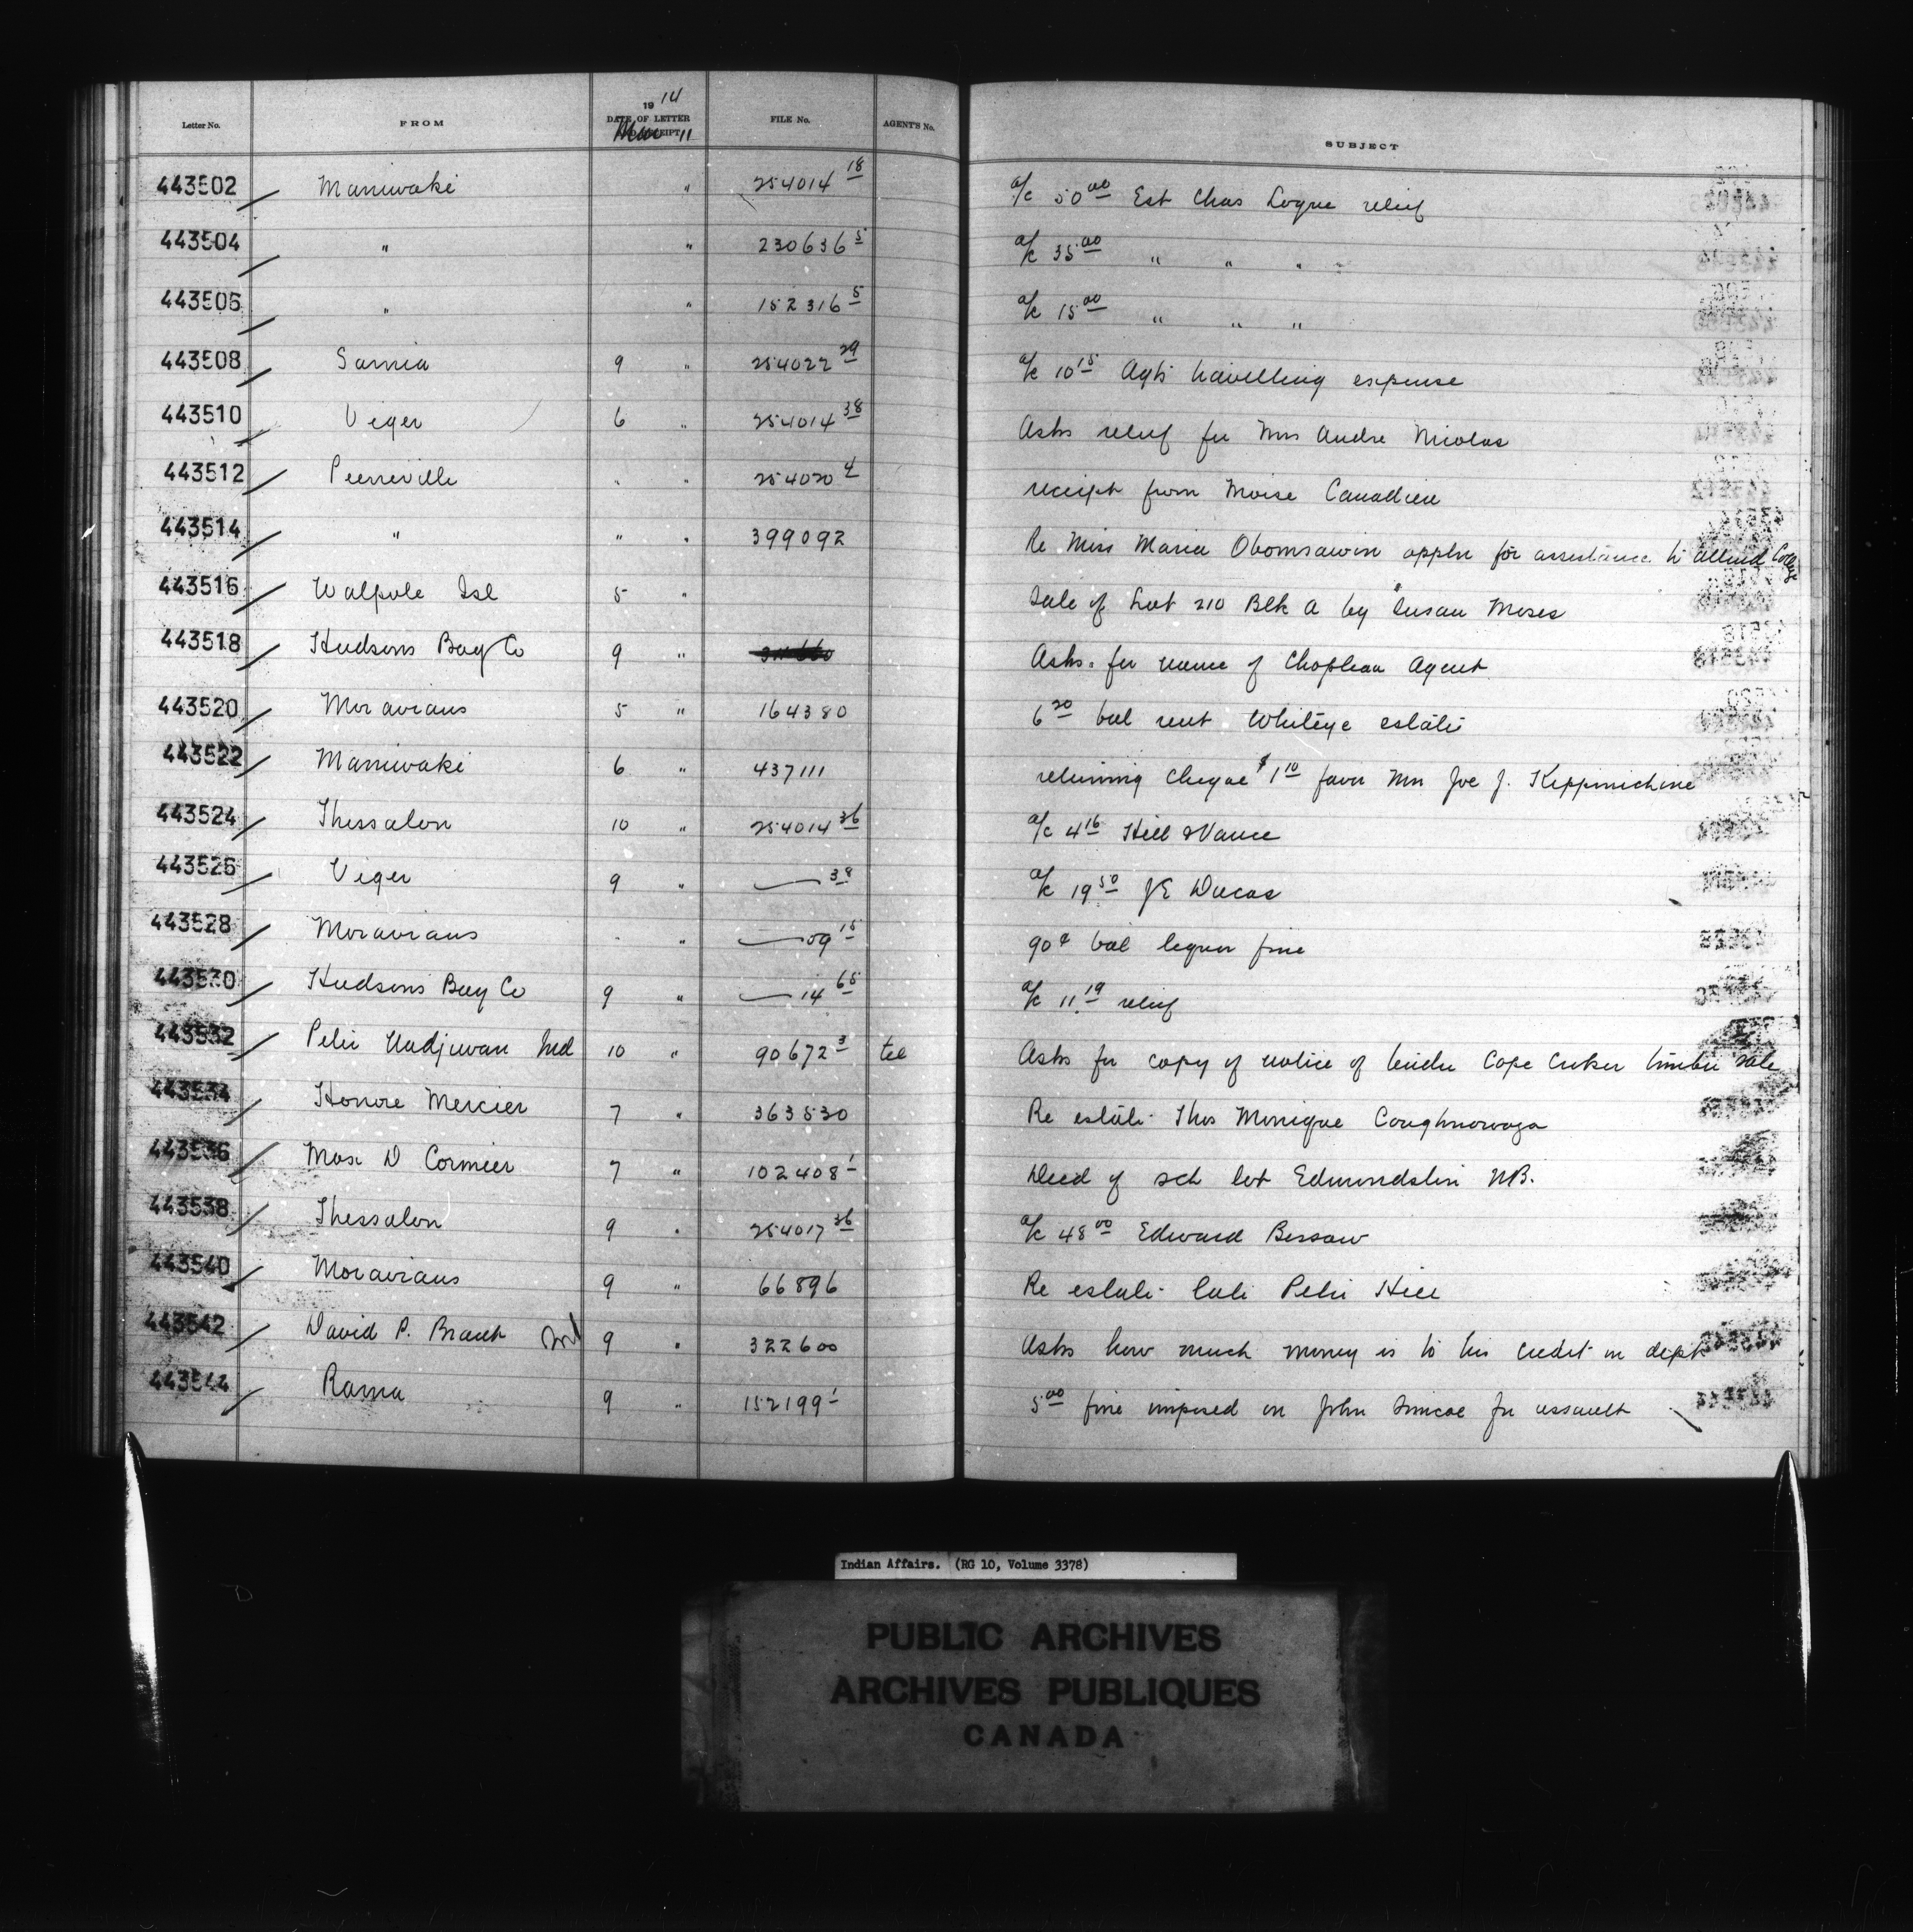 Letter No. FROM 1914 DATE OF LETTER RECEIPT Mar 11 FILE No. AGENT'S No. SUBJECT
443502 Maniwaki " 254014 18 a/c 50 00 Est Chas Logue relief
443504 " " 230636 5 a/c 35 00 " " "
443506 " " 152316 5 a/c 15 00 " " "
443508 Sarnia 9 " 254022 29 a/c 10 15 Agts travelling expense
443510 Viger 6 " 254014 38 Asks relief for Mrs Andre Nicolas
443512 Pierreville " " 254020 4 receipt from Moise Canadien
443514 " " " 399092 Re Miss Maria Obomsawin appln for assistance to attend College
443516 Walpole Isl 5 " Sale of Lot 210 Blk A by Susan Moses
443518 Hudsons Bay Co 9 " Asks for name of Chapleau Agent
443520 Moravians 5 " 164380 6 20 bal rent Whiteye estate
443522 Maniwaki 6 " 437111 returning cheque $1 10 favor Mrs Joe J. Keppinichine
443524 Thessalon 10 " 254014 36 a/c 4 16 Hill & Vance
443526 Viger 9 " — 38 a/c 19 50 JE Ducas
443528 Moravians " " — 09 15 90¢ bal liquor fine
443530 Hudsons Bay Co 9 " — 14 65 a/c 11 19 relief
443532 Peter Nadjiwan Ind 10 " 90672 3 tel Asks for copy of notice of tender Cape Croker timber sale
443534 Honore Mercier 7 " 363530 Re estate Thos Monique Caughnawaga
443536 Max D Cormier 7 " 102408 1 Deed of sch lot Edmundston NB.
443538 Thessalon 9 " 254017 36 a/c 48 00 Edward Bessaw
443540 Moravians 9 " 66896 Re estate late Peter Hill
443542 David P. Brant Ind 9 " 322600 Asks how much money is to his credit in dept
443544 Rama 9 " 152199 1 5 00 fine imposed on John Simcoe for assault
Indian Affairs. (RG 10, Volume 3378)
PUBLIC ARCHIVES
ARCHIVES PUBLIQUES
CANADA